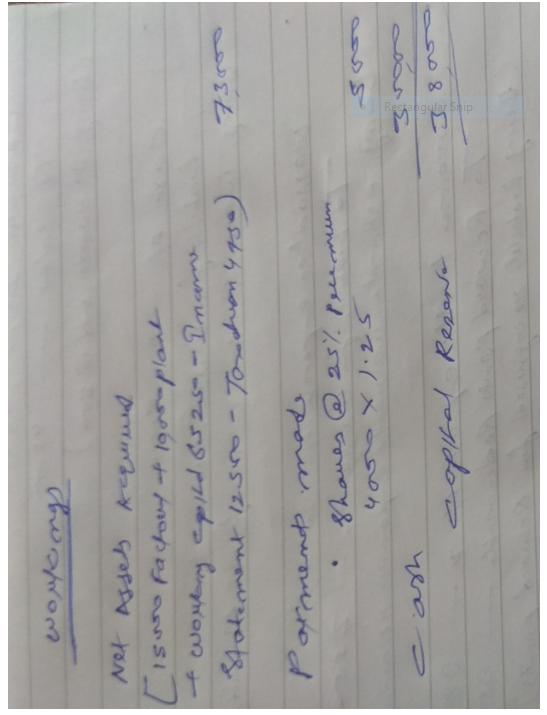 Workings
Net Assets Acquired 73000
[15000 Factory + 10000 plant
+ Working capital 65250 - Income
Statement 12500 - Taxation 4750)
Payments made
• Shares @ 25% Premium
4000 × 1.25 5000
Cash 30000
Capital Reserve 38000
Rectangular Snip